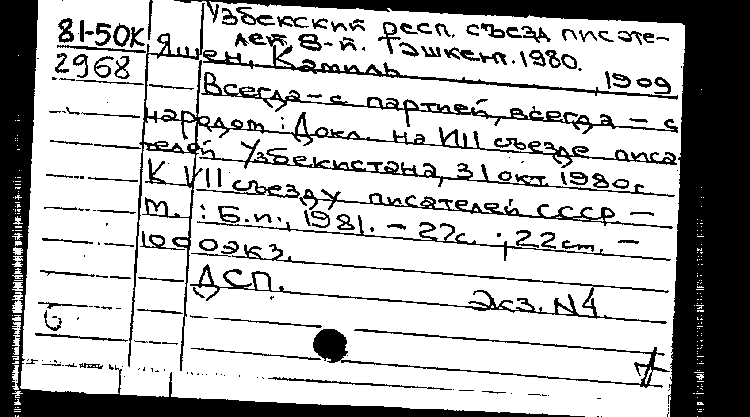 Узбекский респ. съезд писате-
лей, 8-й. Ташкент. 1980.
81-50К
2968
Яшен, Камиль 1909
Всегда – с партией, всегда – с
народом : Докл. на VIII съезде писа-
телей Узбекистана, 31 окт. 1980г.
К VII съезду писателей СССР –
Т. : Б.и., 1981. – 27с. ; 22 см. –
1000экз.
ДСП.
Экз. N4.
6